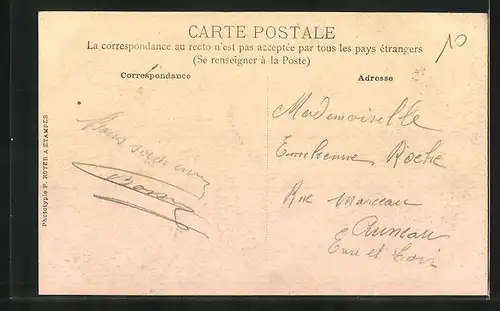 CARTE POSTALE
La correspondance au recto n'est pas acceptée par tous les pays étrangers
(Se renseigner à la Poste)
Correspondance
Adresse
10
Phototypie P. ROYER A ETAMPES
Mademoiselle
Roche
Rue Marceau
Auneau
Eure et Loir